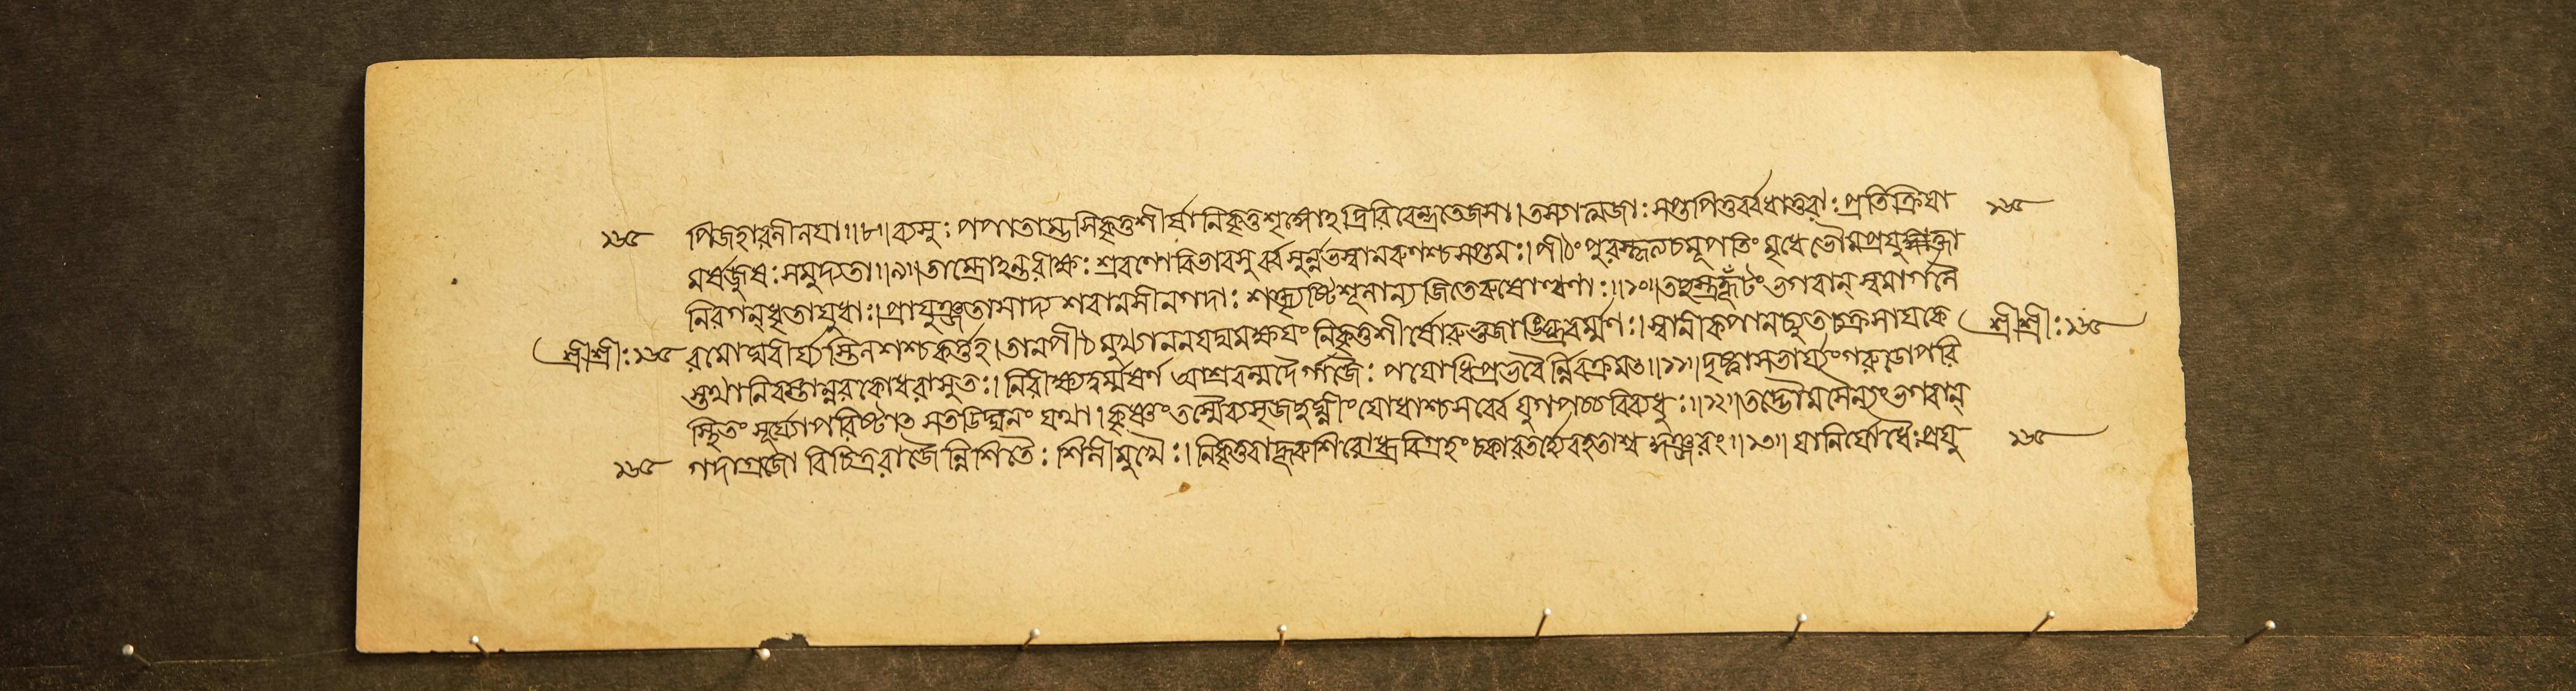 ১৬৫ পিজহারনীনযা॥৮॥ব্যসুঃ পপাতাম্ভসিকৃত্তশীর্ষানিকৃত্তশৃঙ্গোঽদ্রিরিবেন্দ্রতেজসা।তস্যাত্মজাঃ সপ্তপিতুর্ব্বধাতুরাঃ প্রতিক্রিযা ১৬৫
মর্ষজুষঃ সমুদ্যতা॥৯॥তাম্রোঽন্তরীক্ষঃ শ্রবণোবিভাবসুর্ব্বসুর্নভস্বানরুণশ্চসপ্তমঃ।পীঠংপুরস্কৃত্যচমূপতিং মৃধে ভৌমপ্রযুক্তা
নিরগন্ধৃতাযুধাঃ।প্রাযুঞ্জতাসাদ্য শরানসীনগদাঃ শক্ত্যৃষ্টিশূলান্যজিতেরুষোল্বণাঃ॥১০॥তচ্ছস্ত্রকূটং ভগবান্ স্বমার্গণৈ
শ্রীশ্রীঃ ১৬৫ রমোঘবীর্য্যস্তিলশশ্চকর্ত্তহ।তানপীঠমুখ্যাননযদ্যমক্ষযং নিকৃত্তশীর্ষোরুভুজাঙ্ঘ্রিবর্ম্মণঃ।স্বানীকপানচ্যুতচক্রসাযকৈ শ্রীশ্রীঃ ১৬৫
স্তথানিরস্তান্নরকোধরাসুতঃ। নিরীক্ষ্যদুর্ম্মর্ষণ আশ্রবন্মদৈর্গজৈঃ পযোধিপ্রভবৈর্ন্নিরক্রমৎ॥১১॥দৃষ্ট্বাসভার্য্যংগরুডোপরি
স্থিতং সূর্য্যোপরিষ্টাৎ সতডিদ্ঘনং যথা। কৃষ্ণংতস্মৈব্যসৃজচ্ছতঘ্নীং যোধাশ্চসর্ব্বে যুগপচ্চবিব্যধুঃ॥১২॥তদ্ভৌমসৈন্যংভগবান্
১৬৫ গদাগ্রজো বিচিত্রবাজৈর্ন্নিশিতৈঃ শিলীমুখৈঃ। নিকৃত্তবাহূরুশিরোধ্রবিগ্রহং চকারতর্হ্যেবহতাশ্বকুঞ্জরং॥১৩॥ যানির্যোধৈঃপ্রযু ১৬৫